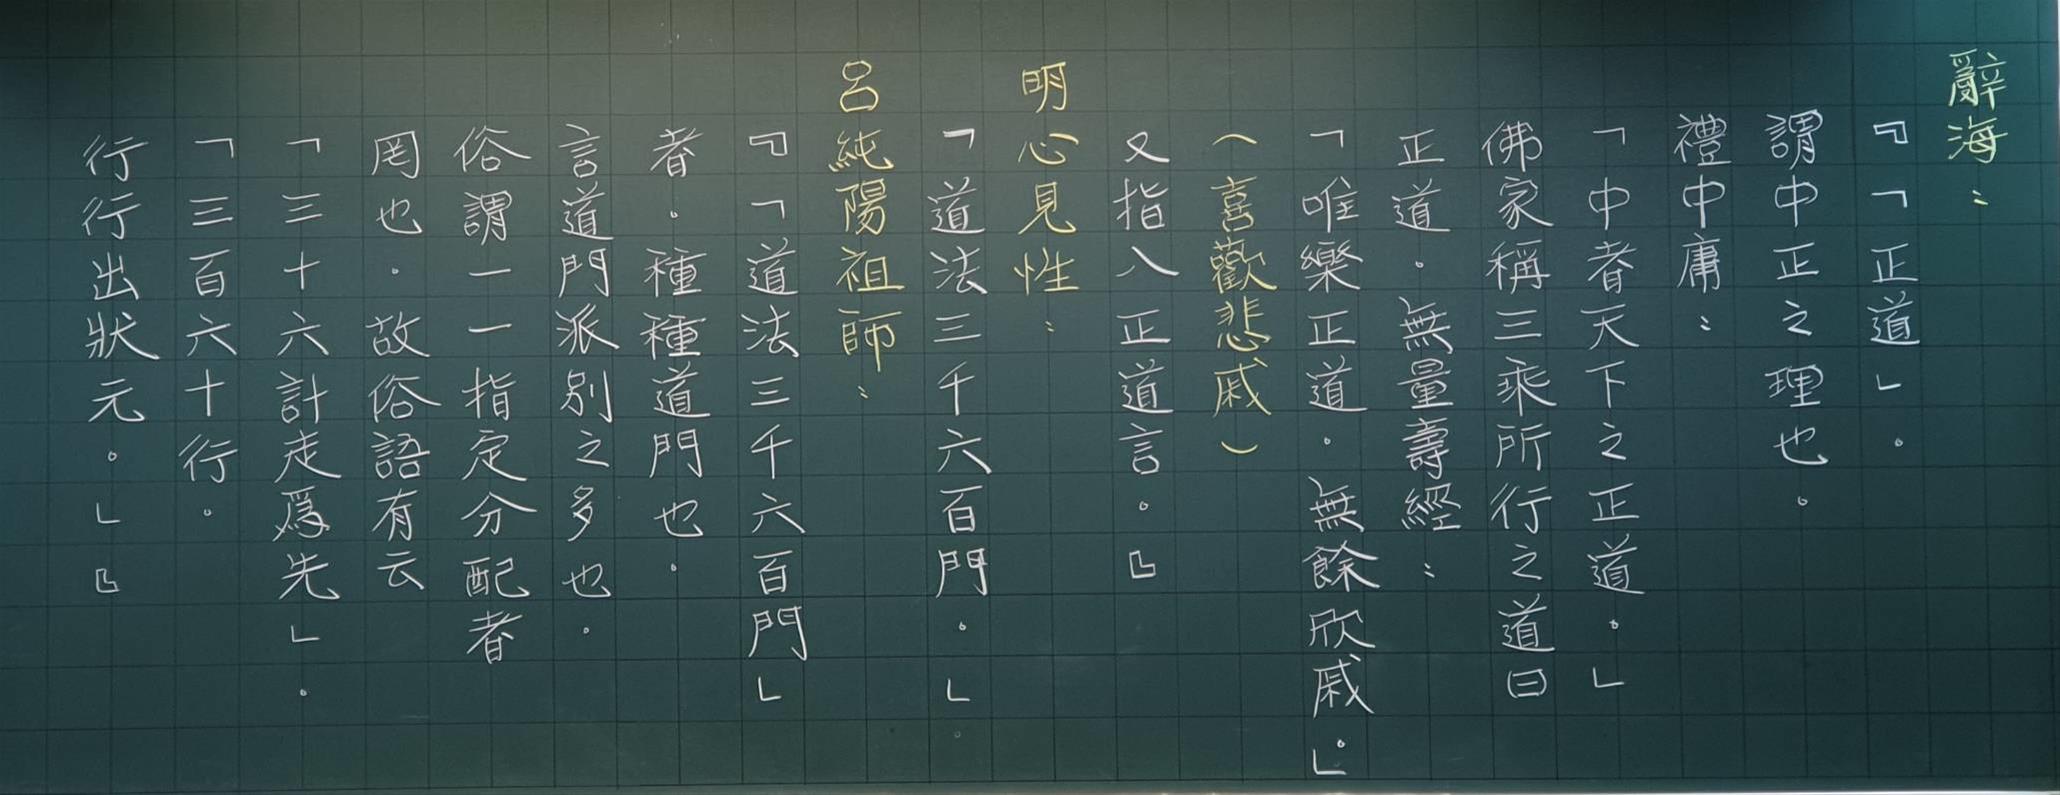 辭海：
『「正道」。
謂中正之理也。
禮中庸：
「中者天下之正道。」
佛家稱三乘所行之道曰
正道。無量壽經：
「唯樂正道。無餘欣戚。」
（喜歡悲戚）
又指八正道言。』
明心見性：
「道法三千六百門。」。
呂純陽祖師：
『「道法三千六百門」
者。種種道門也。
言道門派別之多也。
俗謂一一指定分配者
罔也。故俗語有云
「三十六計走為先」。
「三百六十行。
行行出狀元。」』